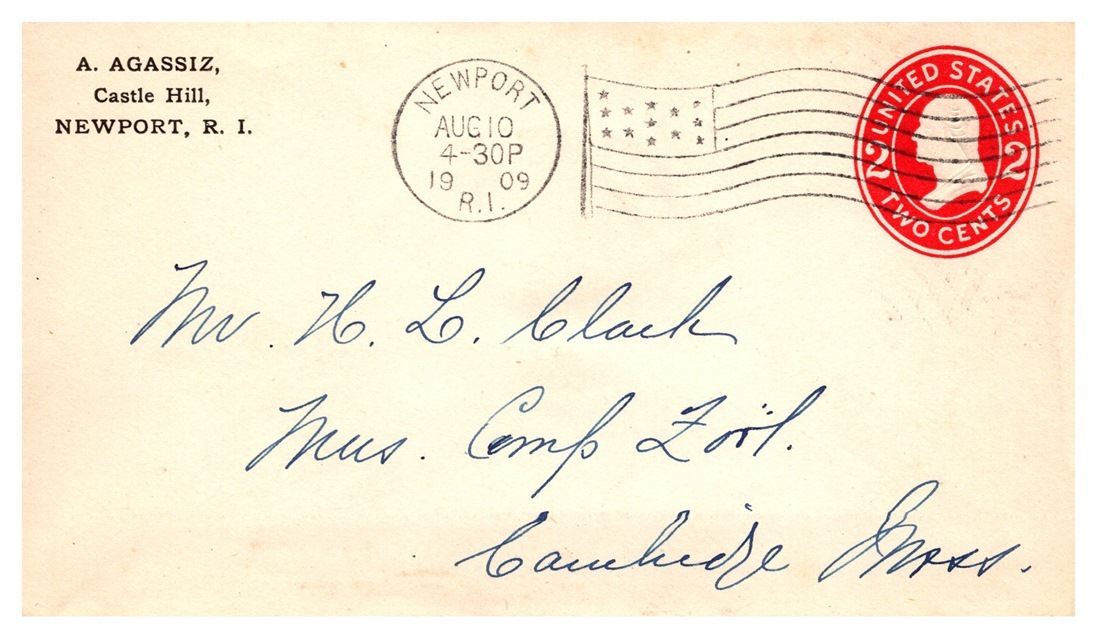 A. AGASSIZ,
Castle Hill,
NEWPORT, R. I.
NEWPORT
AUG 10
4-30P
19 09
R.I.
UNITED STATES
2 2
TWO CENTS
Mr. H. L. Clark
Mus. Comp Zoöl.
Cambridge Mass.